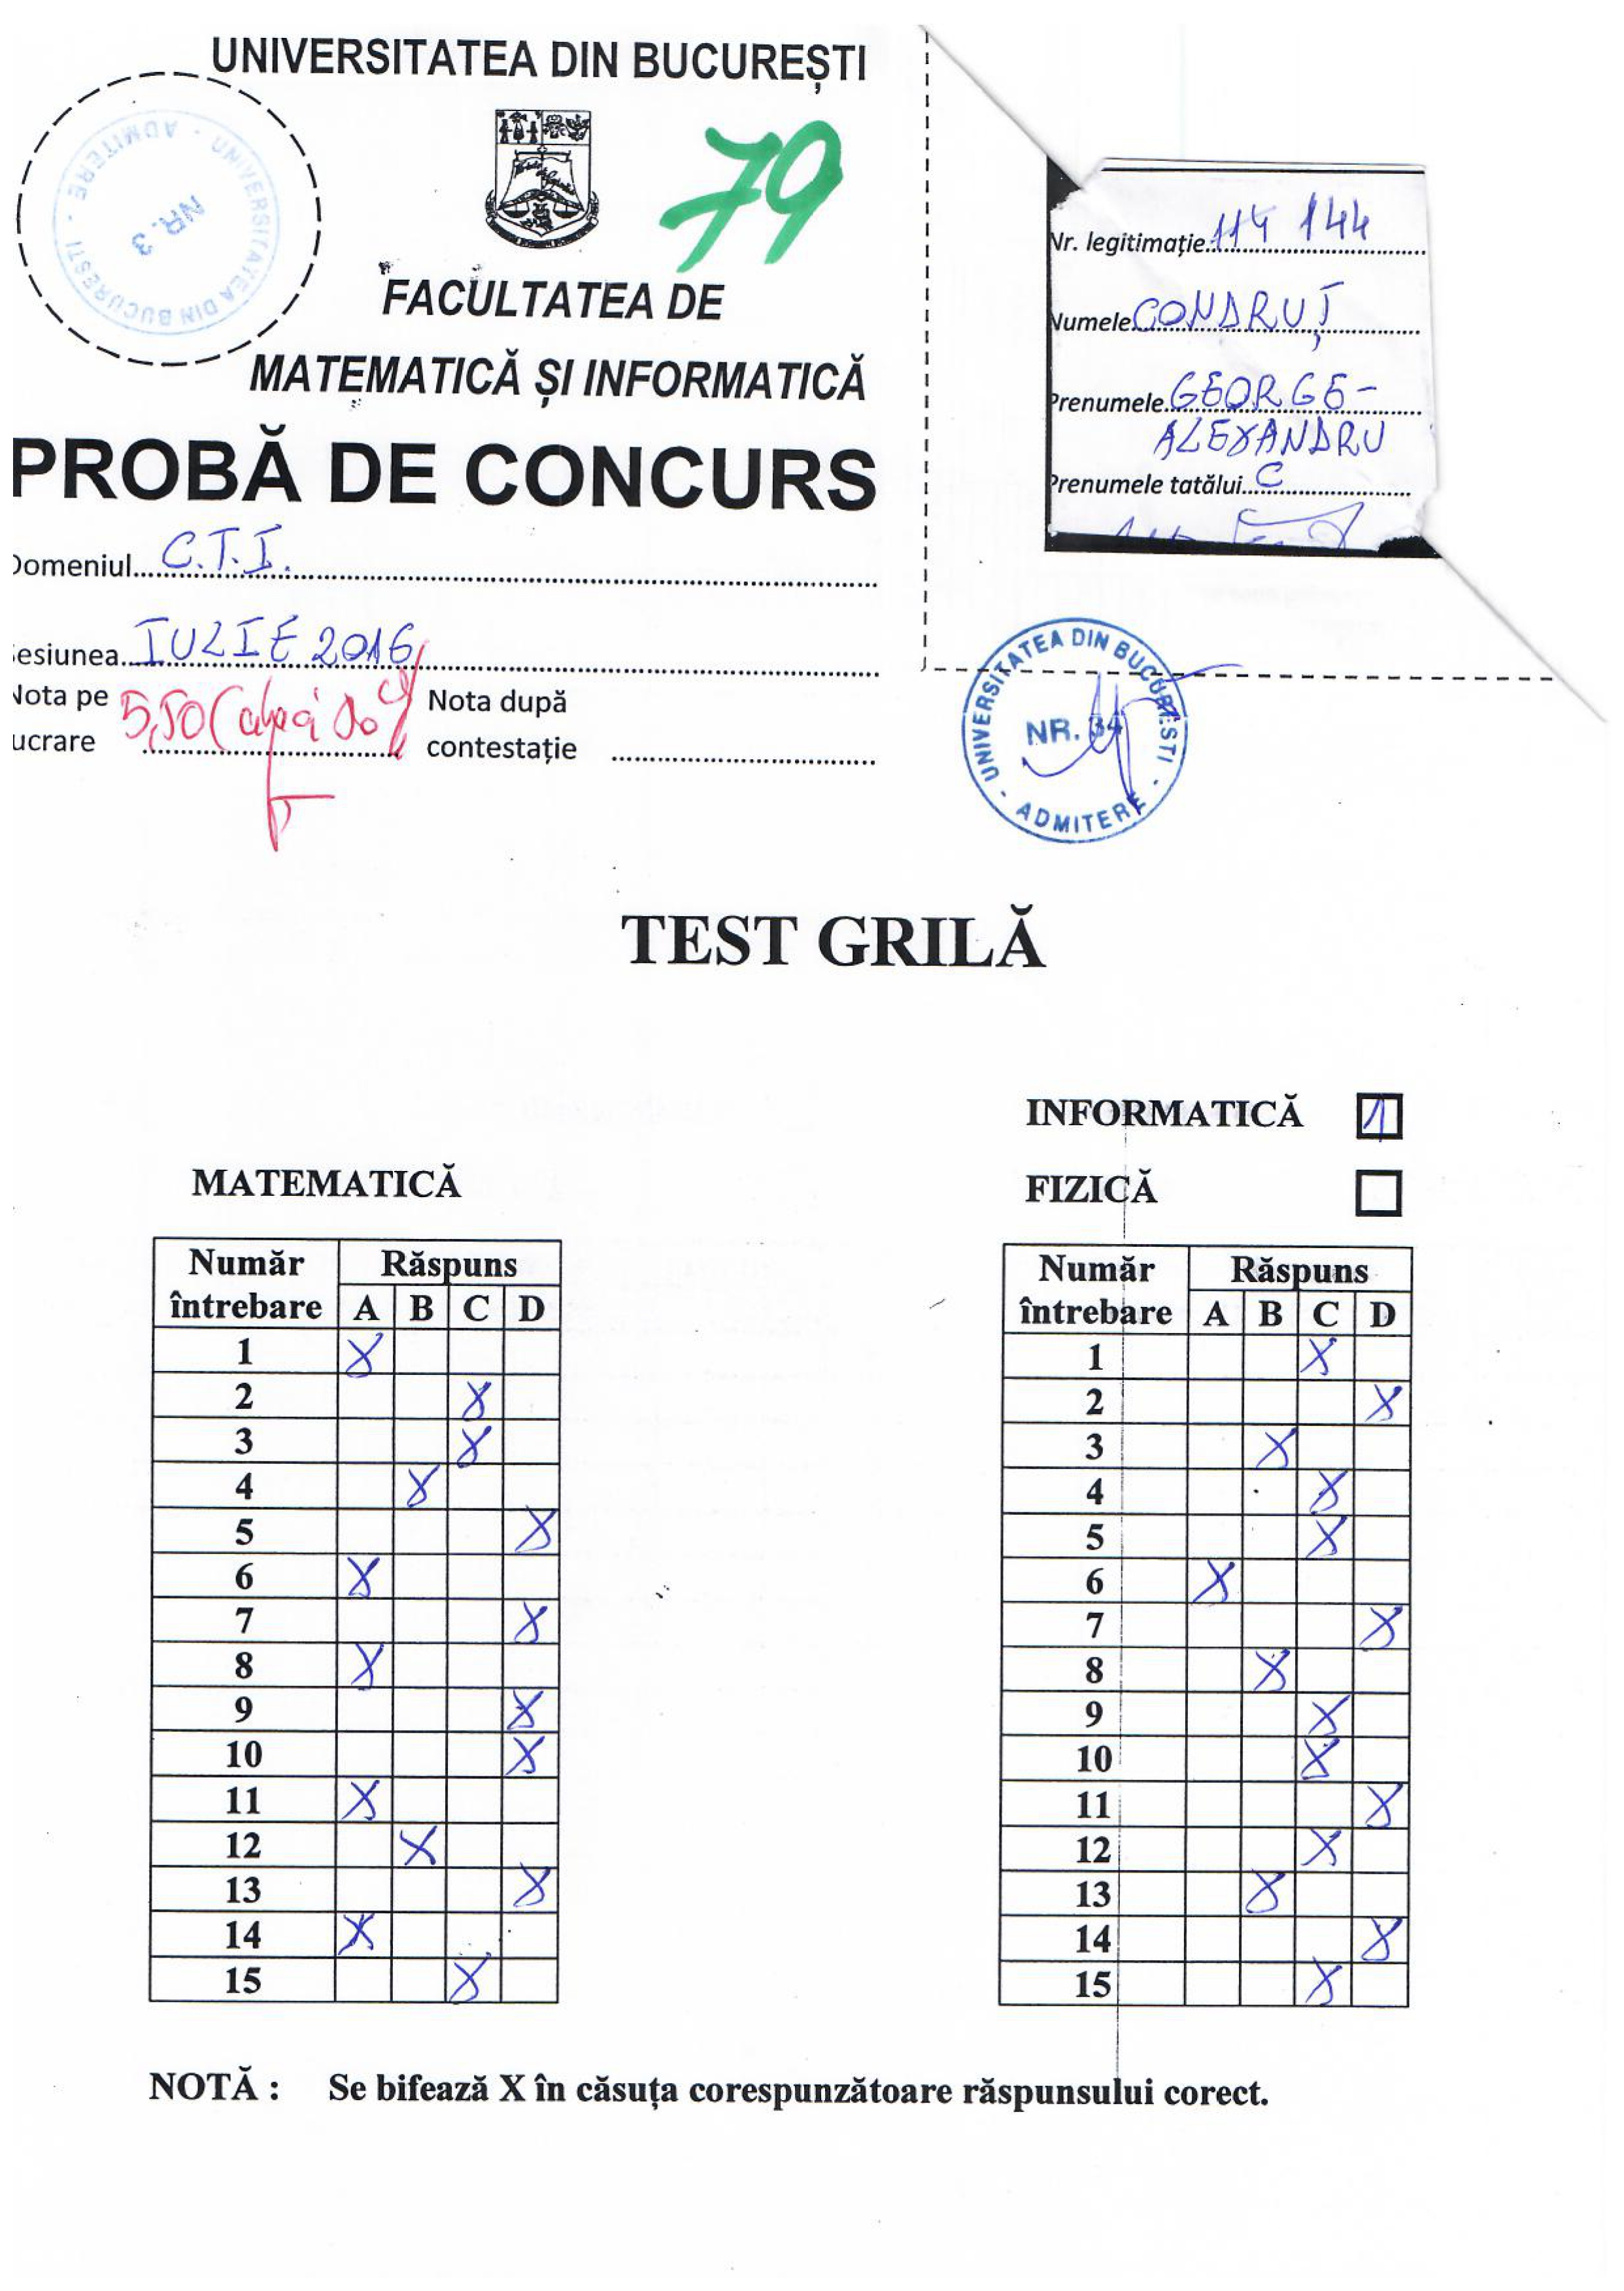 UNIVERSITATEA DIN BUCUREȘTI
UNIVERSITATEA DIN BUCURESTI - ADMITERE -
NR. 3
79
FACULTATEA DE
MATEMATICĂ ȘI INFORMATICĂ
PROBĂ DE CONCURS
Domeniul C.T.I.
esiunea IULIE 2016
Nota pe
ucrare 5,50 (
Nota după
contestație
Nr. legitimație 114 144
Numele CONDRUȚ
Prenumele GEORGE-
ALEXANDRU
Prenumele tatălui C
UNIVERSITATEA DIN BUCUREȘTI - ADMITERE -
NR. 34
TEST GRILĂ
INFORMATICĂ 1
FIZICĂ
MATEMATICĂ
Număr întrebare Răspuns
A B C D
1 X
2 X
3 X
4 X
5 X
6 X
7 X
8 X
9 X
10 X
11 X
12 X
13 X
14 X
15 X
Număr întrebare Răspuns
A B C D
1 X
2 X
3 X
4 X
5 X
6 X
7 X
8 X
9 X
10 X
11 X
12 X
13 X
14 X
15 X
NOTĂ : Se bifează X în căsuța corespunzătoare răspunsului corect.